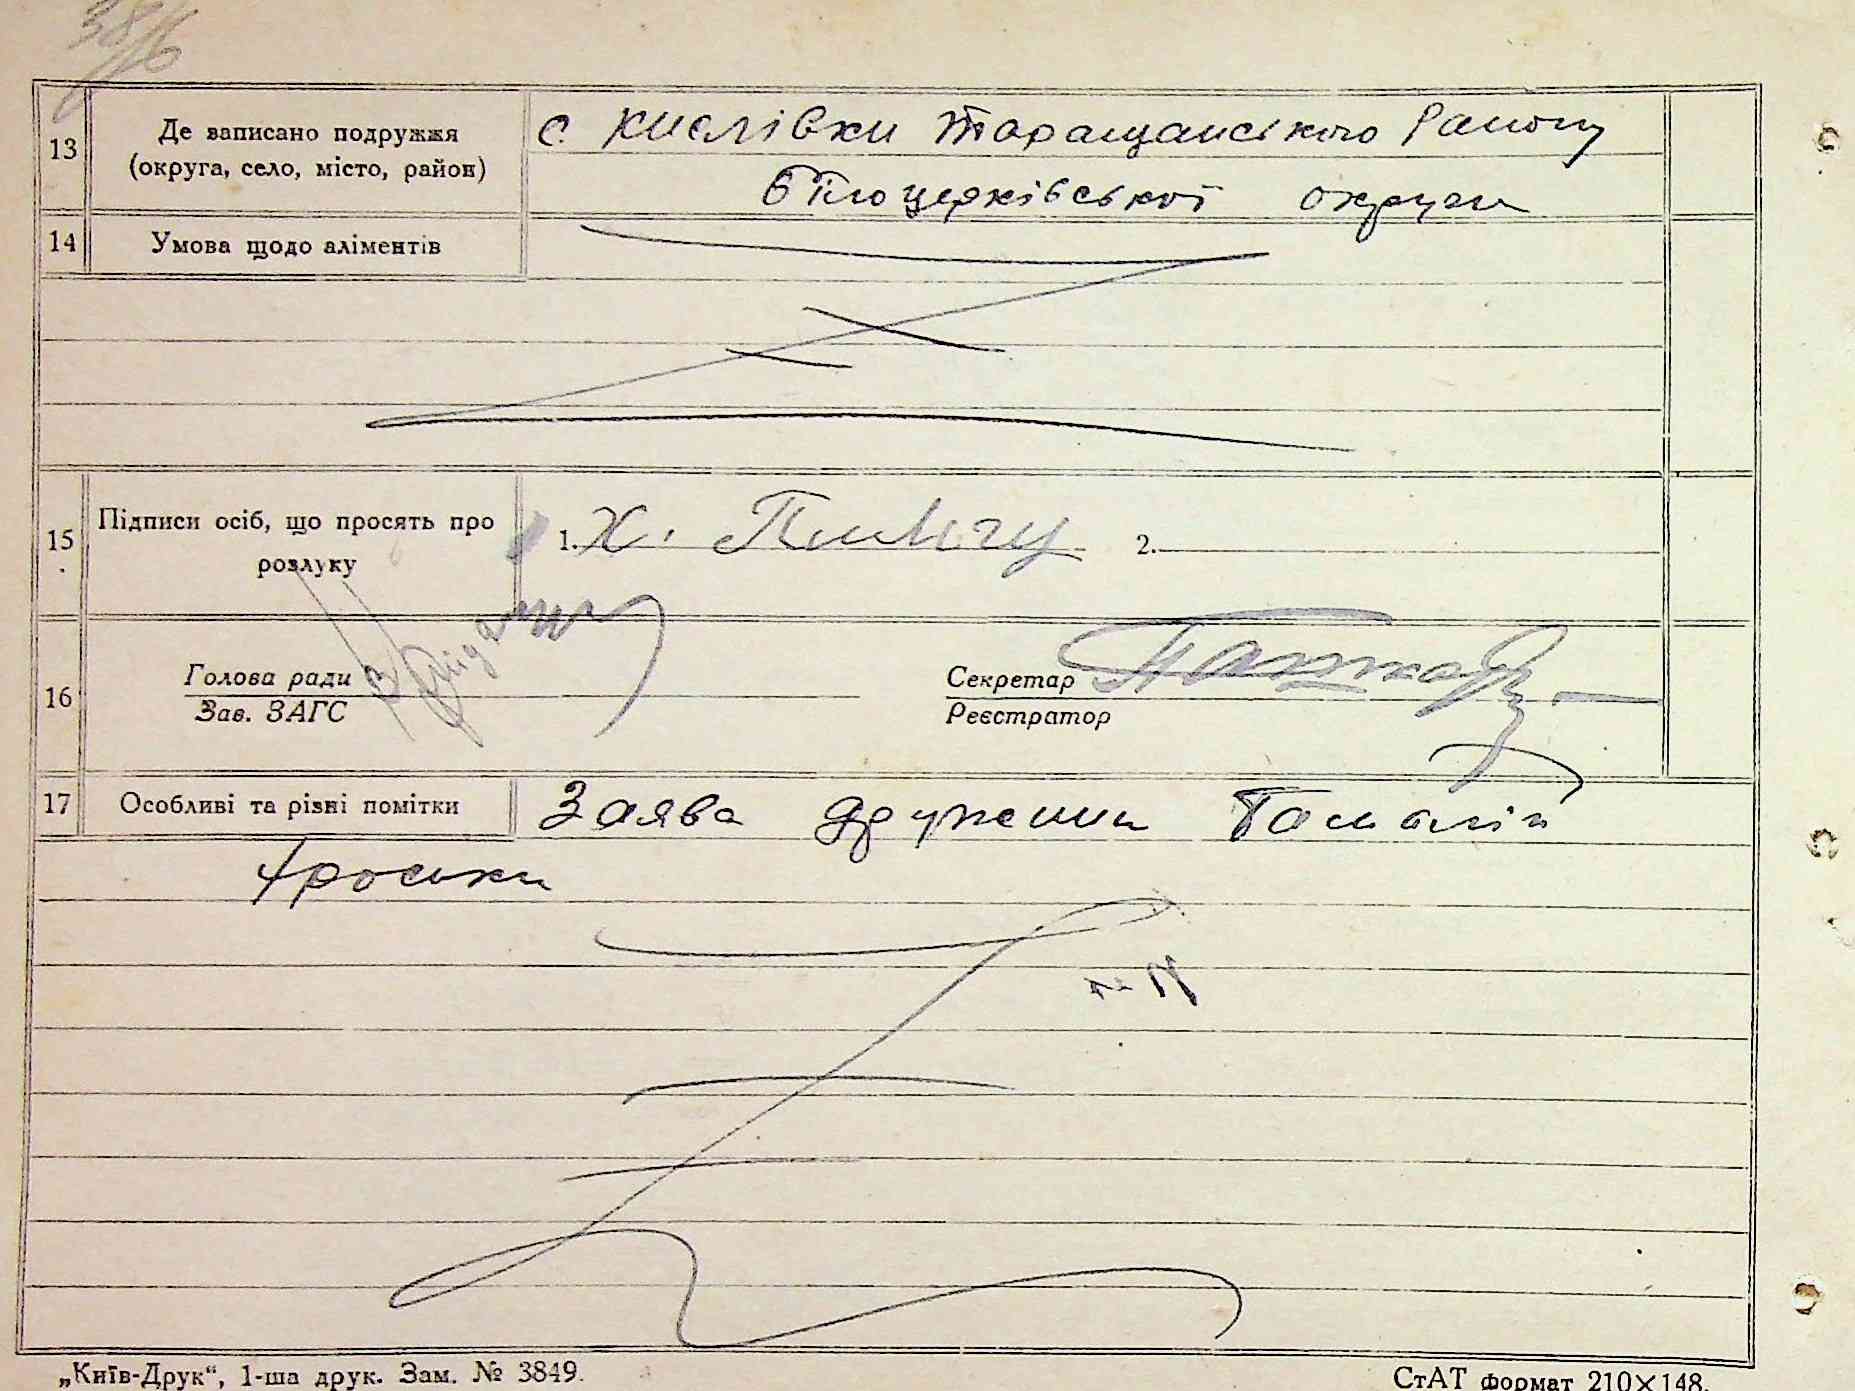 38/6
13 Де записано подружжя (округа, село, місто, район) с. Кислівки Таращанського Району
Білоцерківської округи
14 Умова щодо аліментів
15 Підписи осіб, що просять про розлуку 1. Х. 2.
16 Голова ради
Зав. ЗАГС
Секретар
Реєстратор
17 Особливі та різні помітки Заява дружини
„Київ-Друк“, 1-ша друк. Зам. № 3849.
СтАТ формат 210×148.